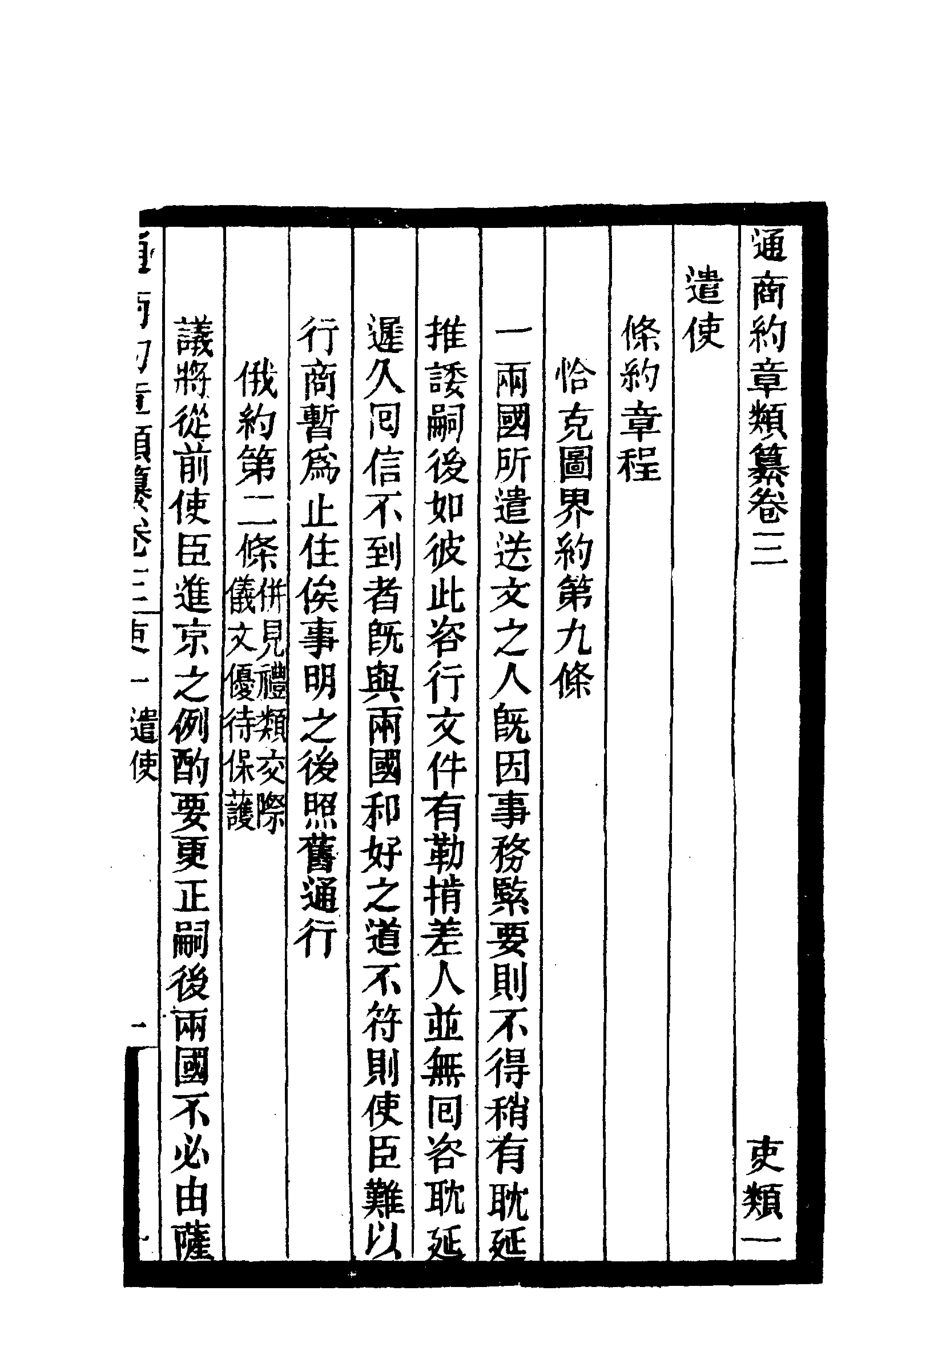 通商約章類纂卷三　吏類一
遣使
條約章程
恰克圖界約第九條
一兩國所遣送文之人旣因事務緊要則不得稍有耽延
推諉嗣後如彼此咨行文件有勒掯差人並無囘咨耽延
遲久囘信不到者旣與兩國和好之道不符則使臣難以
行商暫爲止住俟事明之後照舊通行
俄約第二條併見禮類交際儀文優待保護
議將從前使臣進京之例酌要更正嗣後兩國不必由薩
通商約章類纂卷三吏一遣使　一